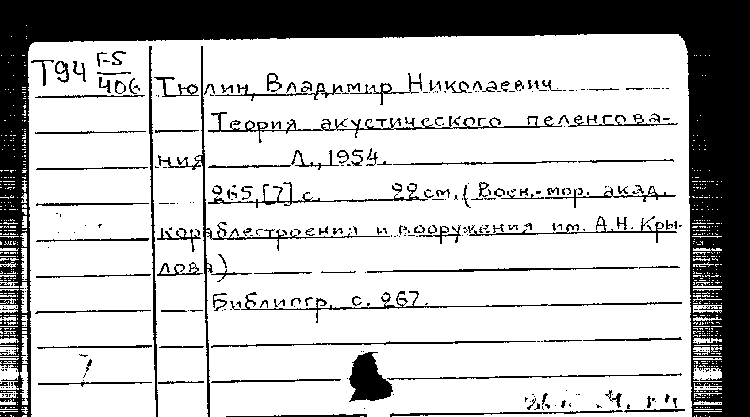 Т94 F-5
406
Тюлин, Владимир Николаевич
Теория акустического пеленгова-
ния Л., 1954.
265,[7] с. 22 см. (Воен.-мор. акад.
кораблестроения и вооружения им. А.Н. Кры-
лова)
Библиогр. с. 267.
7